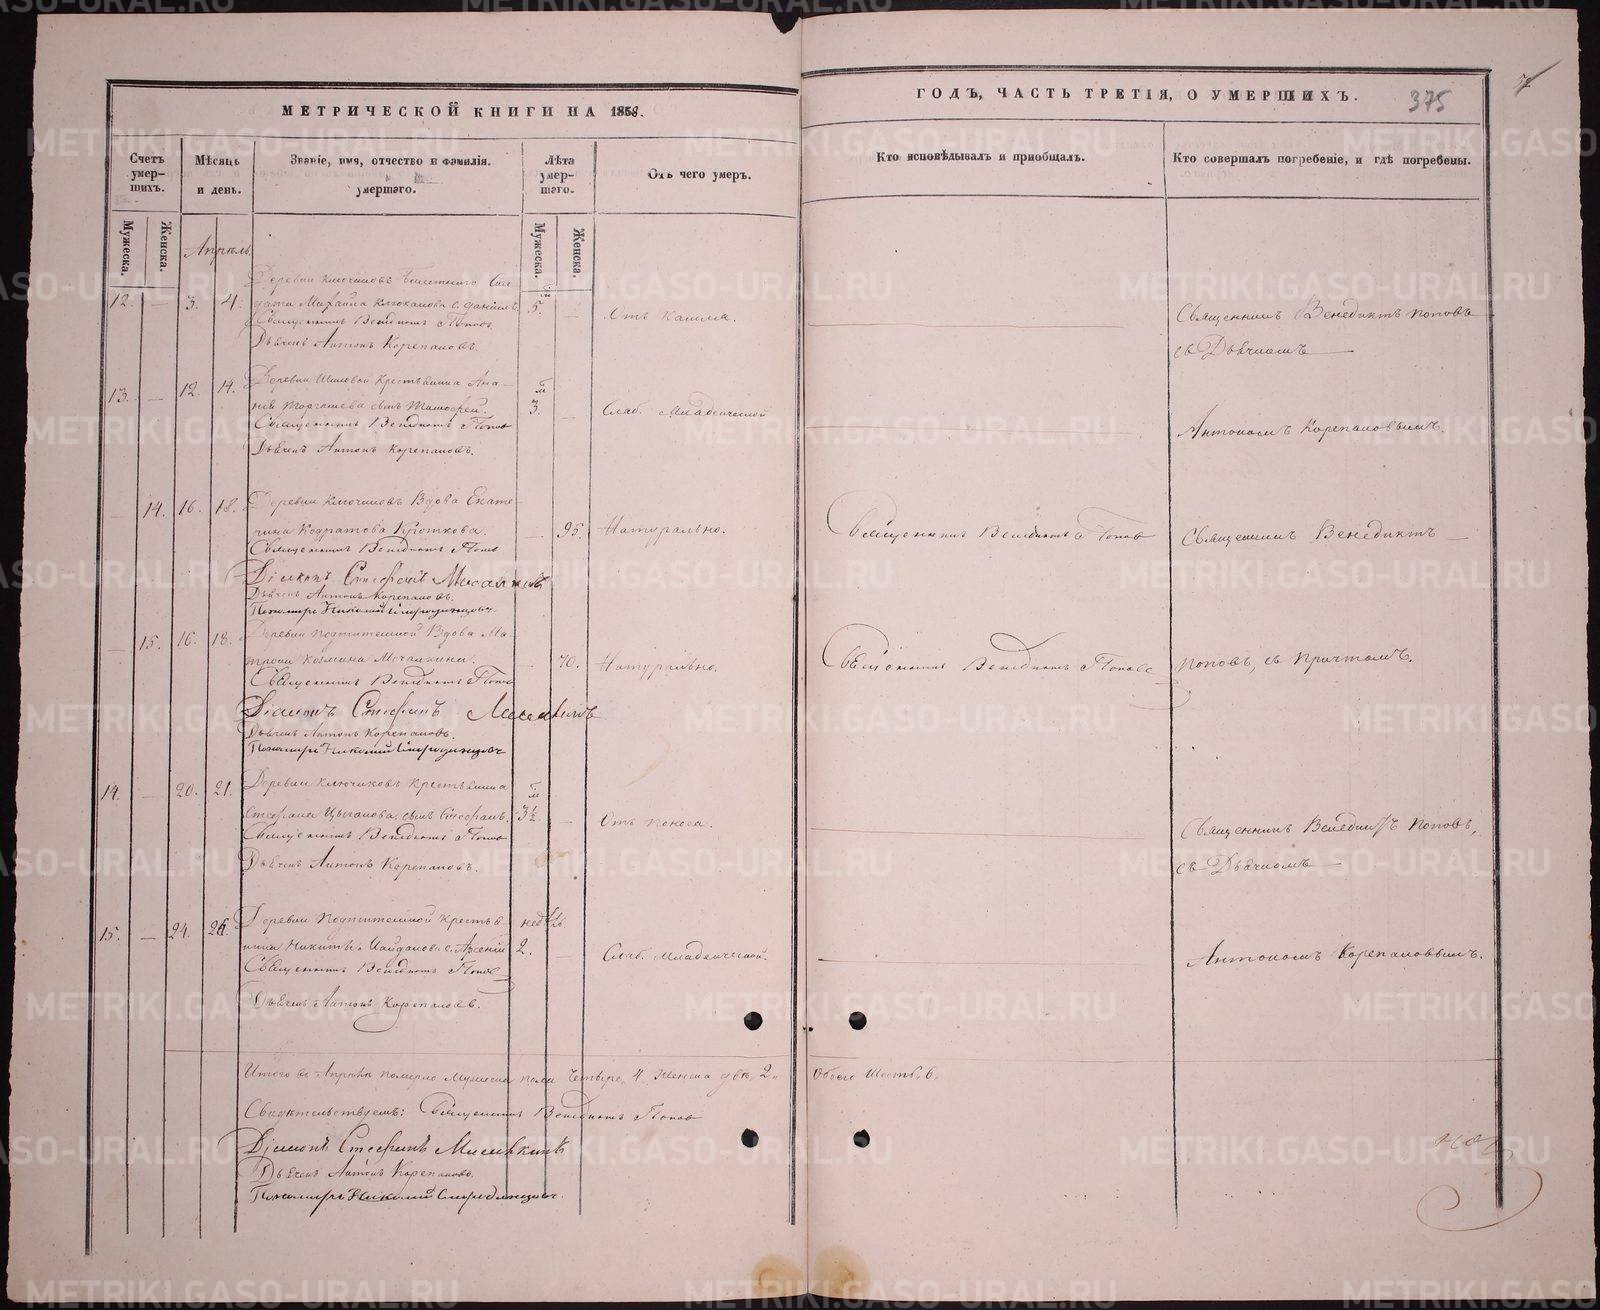 МЕТРИЧЕСКОЙ КНИГИ НА 1858.
ГОДЪ, ЧАСТЬ ТРЕТІЯ, О УМЕРШИХЪ.
375
Счетъ умер-шихъ.
Мѣсяцъ и день.
Званіе, имя, отчество и фамилія. умершаго.
Лѣта умер-шаго.
Отъ чего умеръ.
Кто исповѣдывалъ и приобщалъ.
Кто совершалъ погребеніе, и гдѣ погребены.
Мужеска.
Женска.
Мужеска.
Женска.
Апрѣль
Деревни Ключиковъ Билетнаго Сол-
12. — 3. 4. дата Михаила Клюканова с. Даніилъ 5. — Отъ кашля. Священникъ Венедиктъ Поповъ
Священникъ Венедиктъ Поповъ
Дьячекъ Антонъ Корепановъ. съ Дьячкомъ
Деревни Шиловой Крестьянина Ана-
13. — 12. 14. ніи Торгашева сынъ Тимофей. м 3. — Слаб. Младенческой
Священникъ Венедиктъ Попов Антономъ Корепановымъ.
Дьячекъ Антонъ Корепановъ.
— 14. 16. 18. Деревни Ключиковъ Вдова Екате-
рина Кодратова Кроткова. — 95. Натурально. Священникъ Венедиктъ Попов Священникъ Венедиктъ
Священникъ Венедиктъ Попов
Діаконъ Стефанъ
Дьячекъ Антонъ Корепановъ.
Пономарь Николай
— 15. 16. 18. Деревни Подгитешной Вдова Ма-
трона Козмина Мочалкина. — 70. Натурально. Священникъ Венедиктъ Попов Поповъ, съ Причтомъ.
Священникъ Венедиктъ Попов
Діаконъ Стефанъ
Дьячекъ Антонъ Корепановъ.
Пономарь Николай
14. — 20. 21. Деревни Ключиковъ Крестьянина м
Стефана Цыганова, сынъ Стефанъ. 3½ — Отъ поноса. Священникъ Венедиктъ Поповъ,
Священникъ Венедиктъ Попов
Дьячекъ Антонъ Корепановъ. съ Дьячкомъ
15. — 24. 26. Деревни Подгитешной Крестья- недѣль
нина Никиты Найданова с. Арсеній 2. — Слаб. Младенческой. Антономъ Корепановымъ.
Священникъ Венедиктъ Попов
Дьячекъ Антонъ Корепановъ.
Итого въ Апрѣлѣ померло Мужеска пола Четыре, 4. Женска двѣ, 2. Обоего Шесть, 6.
Свидѣтельствуемъ: Священникъ Венедиктъ Попов
Діаконъ Стефанъ
Дьячекъ Антонъ Корепановъ.
Пономарь Николай
METRIKI.GASO-URAL.RU